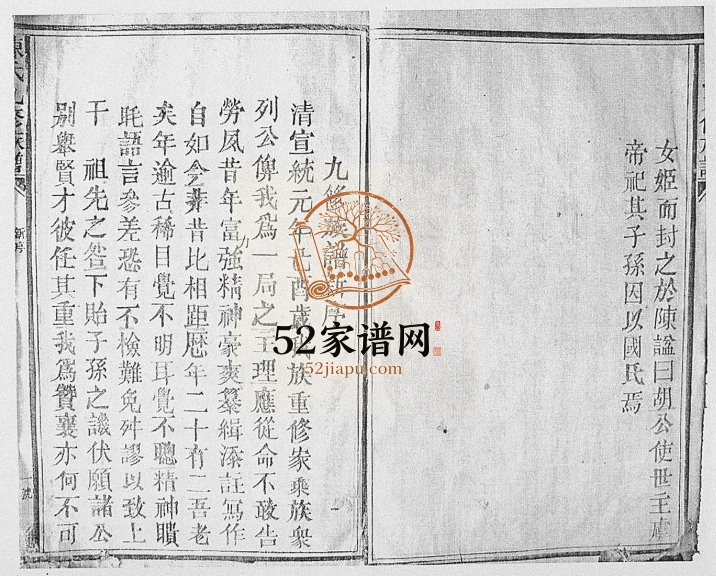 女姬而封之於陳謚曰胡公使世主虞
帝祀其子孫因以國氏焉
九修族譜新序
清宣統元年己酉歲我族重修家乘族衆
列公俾我爲一局之主理應從命不敢告
勞夙昔年富力強精神豪爽纂緝添註寫作
自如今非昔比相距歷年二十有二吾老
矣年逾古稀目覺不明耳覺不聰精神瞶
眊語言參差恐有不檢難免舛謬以致上
干 祖先之咎下貽子孫之譏伏願諸公
別舉賢才彼任其重我爲贊襄亦何不可
陳氏九修族譜
新序
52家谱网
52jiapu.com